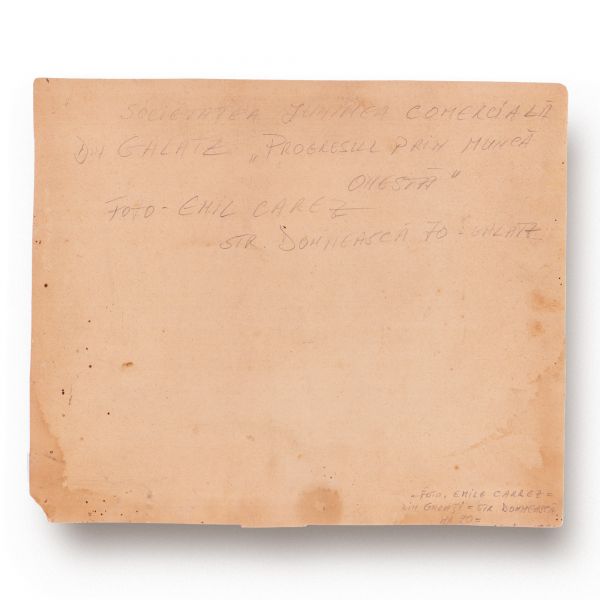 SOCIETATEA JUNIMEA COMERCIALĂ
DIN GALATZ „PROGRESUL PRIN MUNCĂ
ONESTĂ"
FOTO - EMIL CAREZ
STR. DOMNEASCĂ 70 - GALATZ
- FOTO. EMILE CARREZ =
DIN GALAȚI = STR DOMNEASCĂ
No 70 =